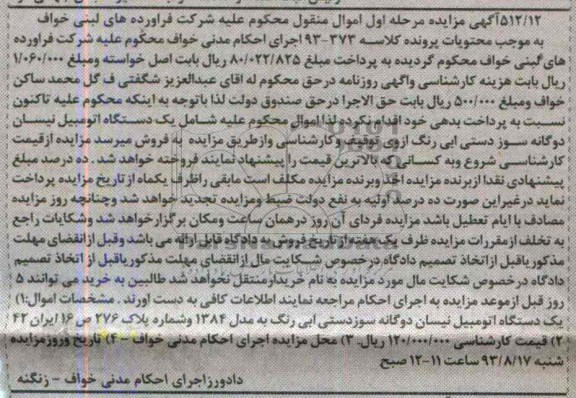 ۵۱۲/۱۲آگهی مزایده مرحله اول اموال منقول محکوم علیه شرکت فراورده های لبنی خواف
به موجب محتویات پرونده کلاسه ۳۷۳-۹۳ اجرای احکام مدنی خواف محکوم علیه شرکت فراورده
های لبنی خواف محکوم گردیده به پرداخت مبلغ ۸۰/۰۲۲/۸۲۵ ریال بابت اصل خواسته ومبلغ ۱/۰۶۰/۰۰۰
ریال بابت هزینه کارشناسی واگهی روزنامه درحق محکوم له اقای عبدالعزیز شگفتی ف گل محمد ساکن
خواف ومبلغ ۵۰۰/۰۰۰ ریال بابت حق الاجرا درحق صندوق دولت لذا باتوجه به اینکه محکوم علیه تاکنون
نسبت به پرداخت بدهی خود اقدام نکرده لذا اموال محکوم علیه شامل یک دستگاه اتومبیل نیسان
دوگانه سوز دستی ابی رنگ ازوی توقیف وکارشناسی وازطریق مزایده به فروش میرسد مزایده ازقیمت
کارشناسی شروع وبه کسانی که بالاترین قیمت را پیشنهاد نمایند فروخته خواهد شد . ده درصد مبلغ
پیشنهادی نقدا ازبرنده مزایده اخذ وبرنده مزایده مکلف است مابقی راظرف یکماه از تاریخ مزایده پرداخت
نماید درغیراین صورت ده درصد اولیه به نفع دولت ضبط ومزایده تجدید خواهد شد وچنانچه روز مزایده
مصادف با ایام تعطیل باشد مزایده فردای آن روز درهمان ساعت ومکان برگزار خواهد شد وشکایات راجع
به تخلف ازمقررات مزایده ظرف یک هفته از تاریخ فروش به دادگاه قابل ارائه می باشد وقبل ازانقضای مهلت
مذکور یاقبل ازاتخاذ تصمیم دادگاه درخصوص شکایت مال ازانقضای مهلت مذکور یاقبل از اتخاذ تصمیم
دادگاه درخصوص شکایت مال مورد مزایده به نام خریدار منتقل نخواهد شد طالبین به خرید می توانند ۵
روز قبل ازموعد مزایده به اجرای احکام مراجعه نمایند اطلاعات کافی به دست اورند . مشخصات اموال:۱)
یک دستگاه اتومبیل نیسان دوگانه سوزدستی ابی رنگ به مدل ۱۳۸۴ وشماره پلاک ۲۷۶ ص ۱۶ ایران ۴۲
۲) قیمت کارشناسی ۱۲۰/۰۰۰/۰۰۰ ریال. ۳) محل مزایده اجرای احکام مدنی خواف - ۴) تاریخ وروزمزایده
شنبه ۹۳/۸/۱۷ ساعت ۱۱-۱۲ صبح
دادورز اجرای احکام مدنی خواف - زنگنه